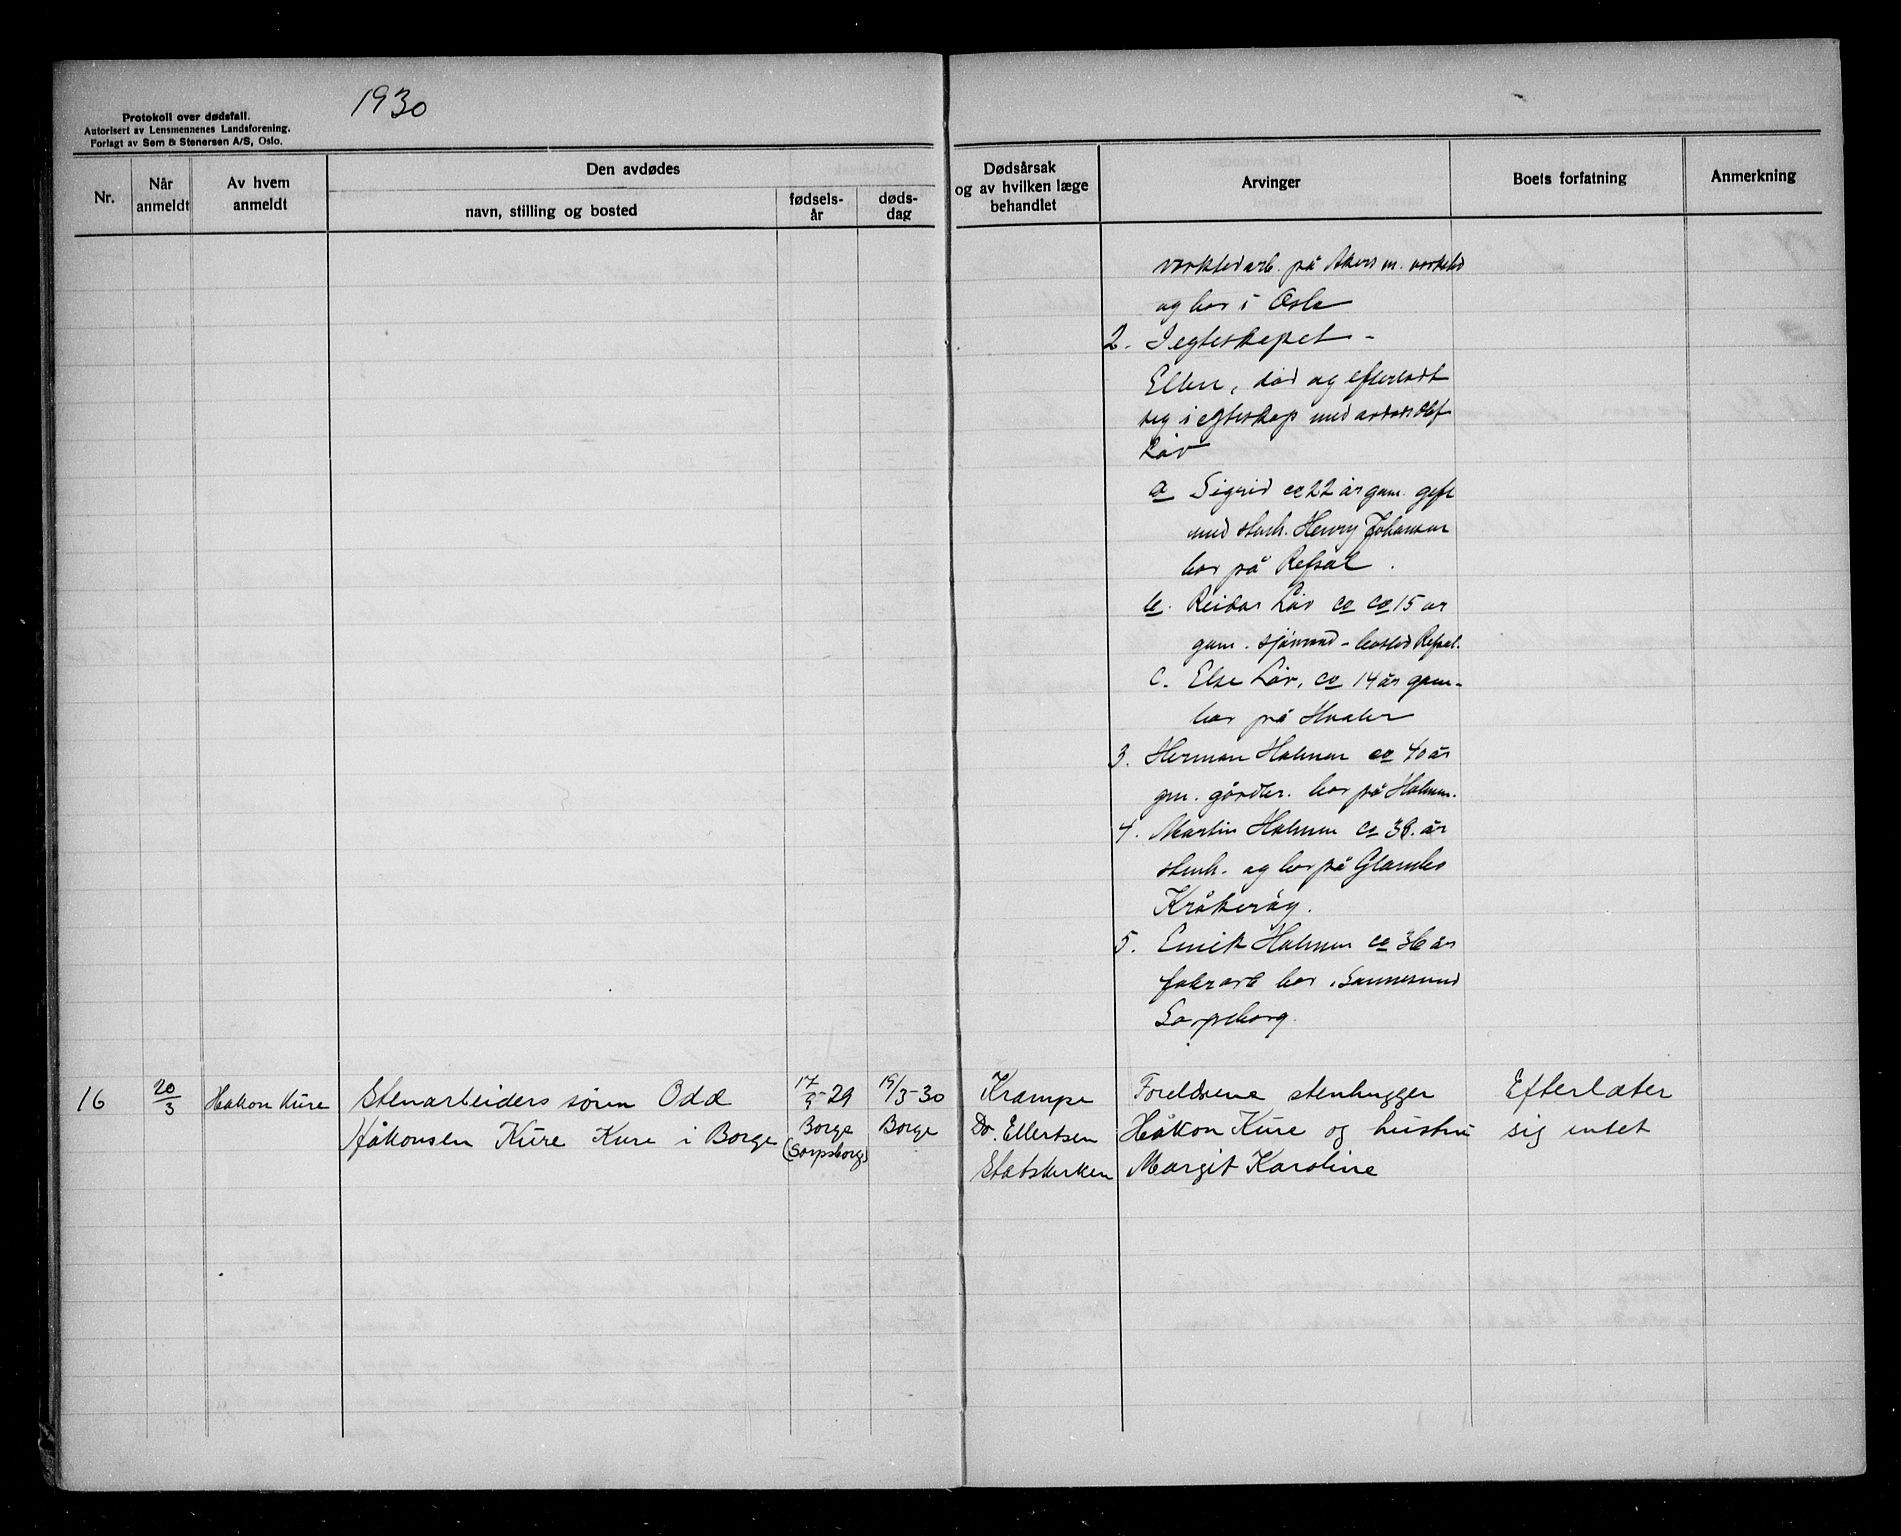 1930
Protokoll over dødsfall.
Autorisert av Lensmennenes Landsforening.
Forlagt av Sem & Stenersen A/S, Oslo.
Nr.
Når anmeldt
Av hvem anmeldt
Den avdødes
navn, stilling og bosted
fødselsår
dødsdag
Dødsårsak
og av hvilken læge
behandlet
Arvinger
Boets forfatning
Anmerkning
på Akers m.
og bor i Oslo
2. I egteskapet -
Ellen, død og efterladt
sig i egteskap med
Löv
a Sigrid ca 22 år gam. gift
med stenh. Henry Johansen
bor på Refsal.
b. Reidar Löv ca ca 15 år
gam. sjömand - bosted Refsal.
c. Else Löv, ca 14 år gam-
bor på Hvaler
3. Herman Holmen ca 40 år
gm. gårdbr. bor på Holmen.
4. Martin Holmen ca 38. år
stenh. og bor på
Kråkeröy.
5. Emil Holmen ca 36 år
bor i Sannesund
Sarpsborg.
16
20/3
Håkon Kure
Stenarbeiders sönn Odd
Håkonsen Kure Kure i Borge
17/5-29
Borge
(Sarpsborg)
19/3-30
Borge
Krampe
Dr. Ellertsen
Statskirken
Foreldrene stenhugger
Håkon Kure og hustru
Margit Karoline
Efterlater
sig intet